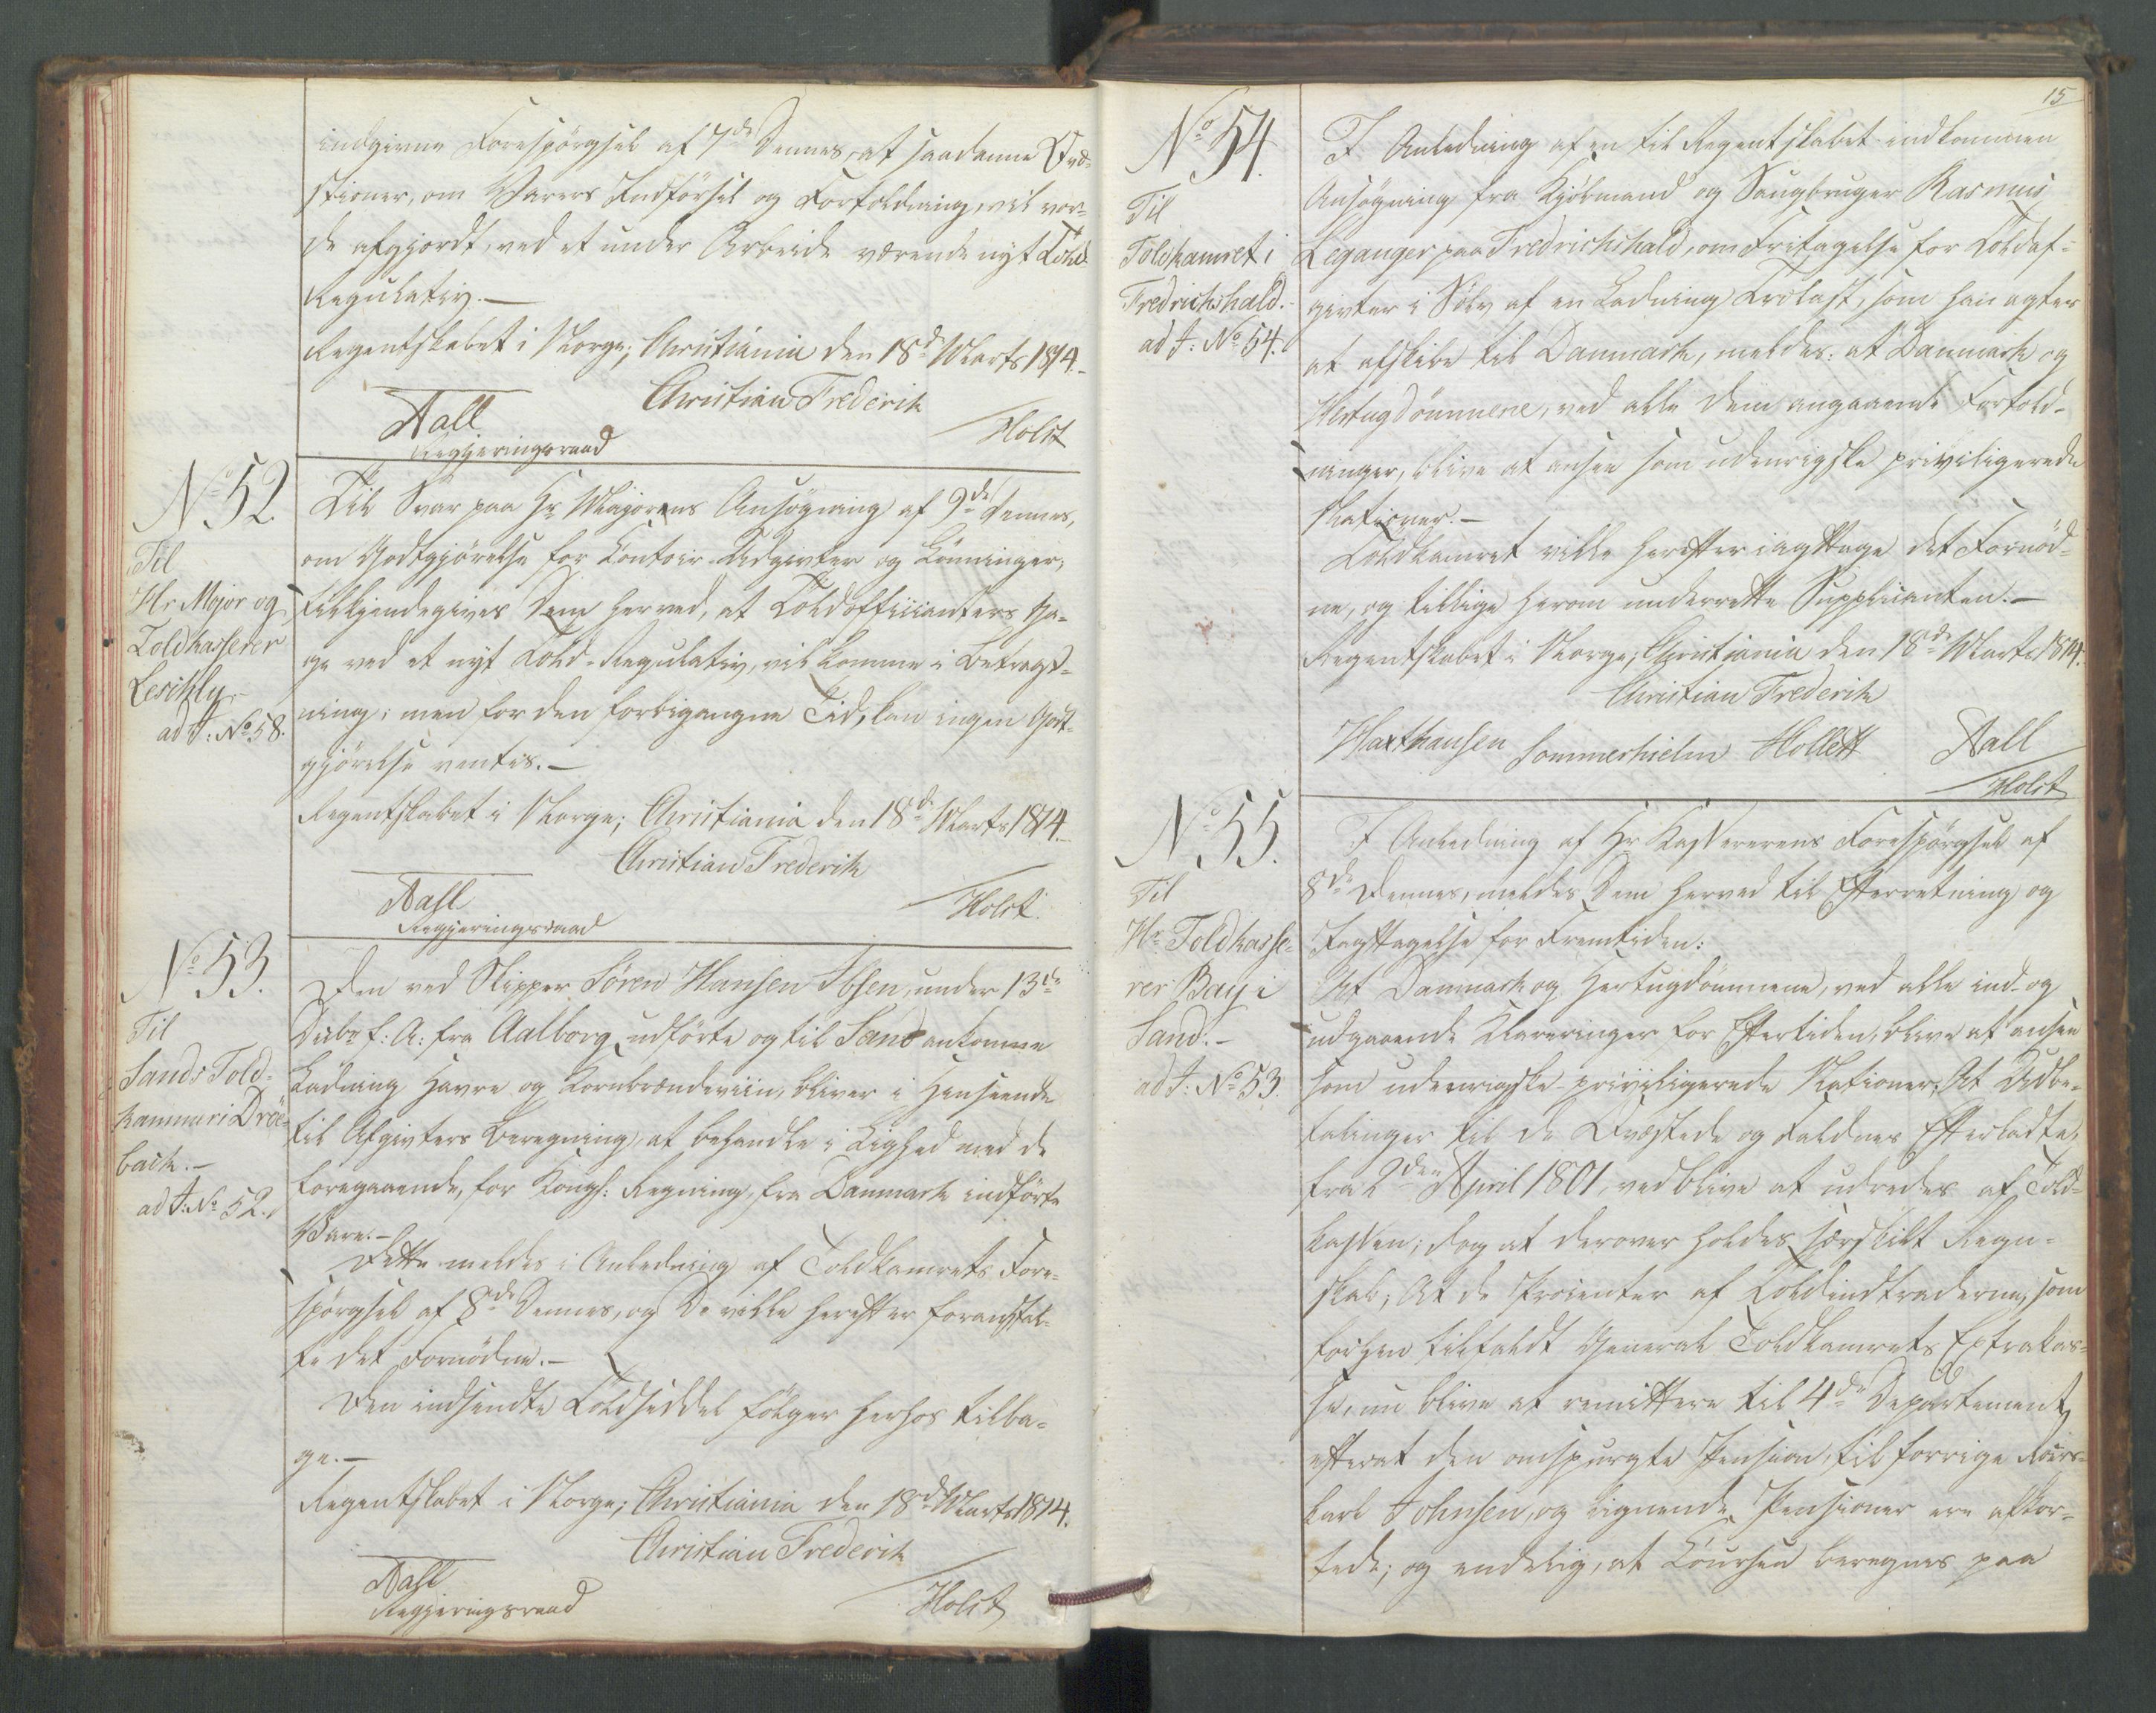 indgivne Forespörgsel af 7de Dennes, at saadanne Qvæ-
stioner, om Varers Indförsel og Fortoldning, vil vor-
de afgjordt, ved et under Arbeide værende nyt Told-
Regulativ.—
Regentskabet i Norge; Christiania den 18de Marts 1814.
Christian Frederik
Aall
Regjeringsraad
Holst
No 52.
Til
Hr Major og
Toldkasserer
Leschly.
ad J: No 58.
Til Svar paa Hr Majorens Ansögning af 9de Dennes,
om Godtgjörelse for Contoir-Udgivter og Lönninger,
tilkjendegives Dem herved, at Toldofficianters Ga-
ge ved et nyt Told-Regulativ, vil komme i Betragt-
ning; men for den forbigangne Tid, kan ingen Godt-
gjörelse ventes.—
Regentskabet i Norge; Christiania den 18de Marts 1814.
Christian Frederik
Aall
Regjeringsraad
Holst
No 53.
Til
Sands Told-
kammer i Dröe-
bach.—
ad J: No 52.
Den ved Skipper Sören Hansen Ibsen, under 13de
Decbr f: A: fra Aalborg udförte og til Sand ankomne
Ladning Havre og Kornbrændeviin, bliver i Henseende
til Afgivters Beregning, at behandle i Lighed med de
foregaaende, for Kongl: Regning, fra Danmark indförte
Vare.—
Dette meldes i Anledning af Toldkamrets Fore-
spörgsel af 8de Dennes, og De ville herefter foranstal-
te det Fornödne.—
Den indsendte Toldseddel fölger herhos tilba-
ge.—
Regentskabet i Norge; Christiania den 18de Marts 1814.
Christian Frederik
Aall
Regjeringsraad
Holst
15
No 54.
Til
Toldkamret i
Fredrichshald.
ad J: No 54.
I Anledning af en til Regentskabet indkommen
Ansögning fra Kjöbmand og Saugbruger Rasmus
Leganger paa Fredrichshald, om Fritagelse for Toldaf-
givter i Sölv af en Ladning Trælast, som han agter
at afskibe til Danmark, meldes: at Danmark og
Hertugdömmene, ved alle dem angaaende Fortold-
ninger, blive at ansee som udenrigske priviligerede
Nationer.—
Toldkamret ville herefter iagttage det Fornöd-
ne, og tillige herom underrette Supplicanten.—
Regentskabet i Norge; Christiania den 18de Marts 1814.
Christian Frederik
Haxthausen Sommerhielm Hollett Aall
Holst
No 55.
Til
Hr Toldkasse-
rer Bay i
Sand.—
ad J: No 53.
I Anledning af Hr Kassererens Forespörgsel af
8de Dennes, meldes Dem herved til Efterretning og
Iagttagelse for Fremtiden:
At Danmark og Hertugdömmene, ved alle ind- og
udgaaende Klareringer for Eftertiden, blive at ansee
som udenrigske priviligerede Nationer; At Udbe-
talinger til de Qvæstede og Faldnes Efterladte,
fra 2den April 1801, vedblive at udredes af Told-
kassen; dog at derover holdes særskilt Regn-
skab; At de Procenter af Toldindtraderne, som
forhen tilfaldt General Toldkamrets Extrakas-
se, nu blive at remittere til 4de Departement,
efterat den omspurgte Pension, til forrige Roers-
karl Johnsen, og lignende Pensioner ere afkor-
tede; og endelig, at Coursen beregnes paa